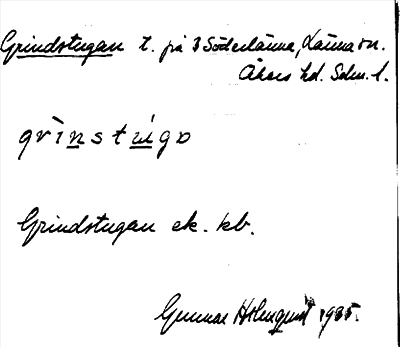 Grindstugan t. på 3 Söderlänna, Länna sn.
Åkers hd. Sdm. l.
grìnstúgo
Grindstugan ek. kb.
Gunnar Holmqvist 1935.